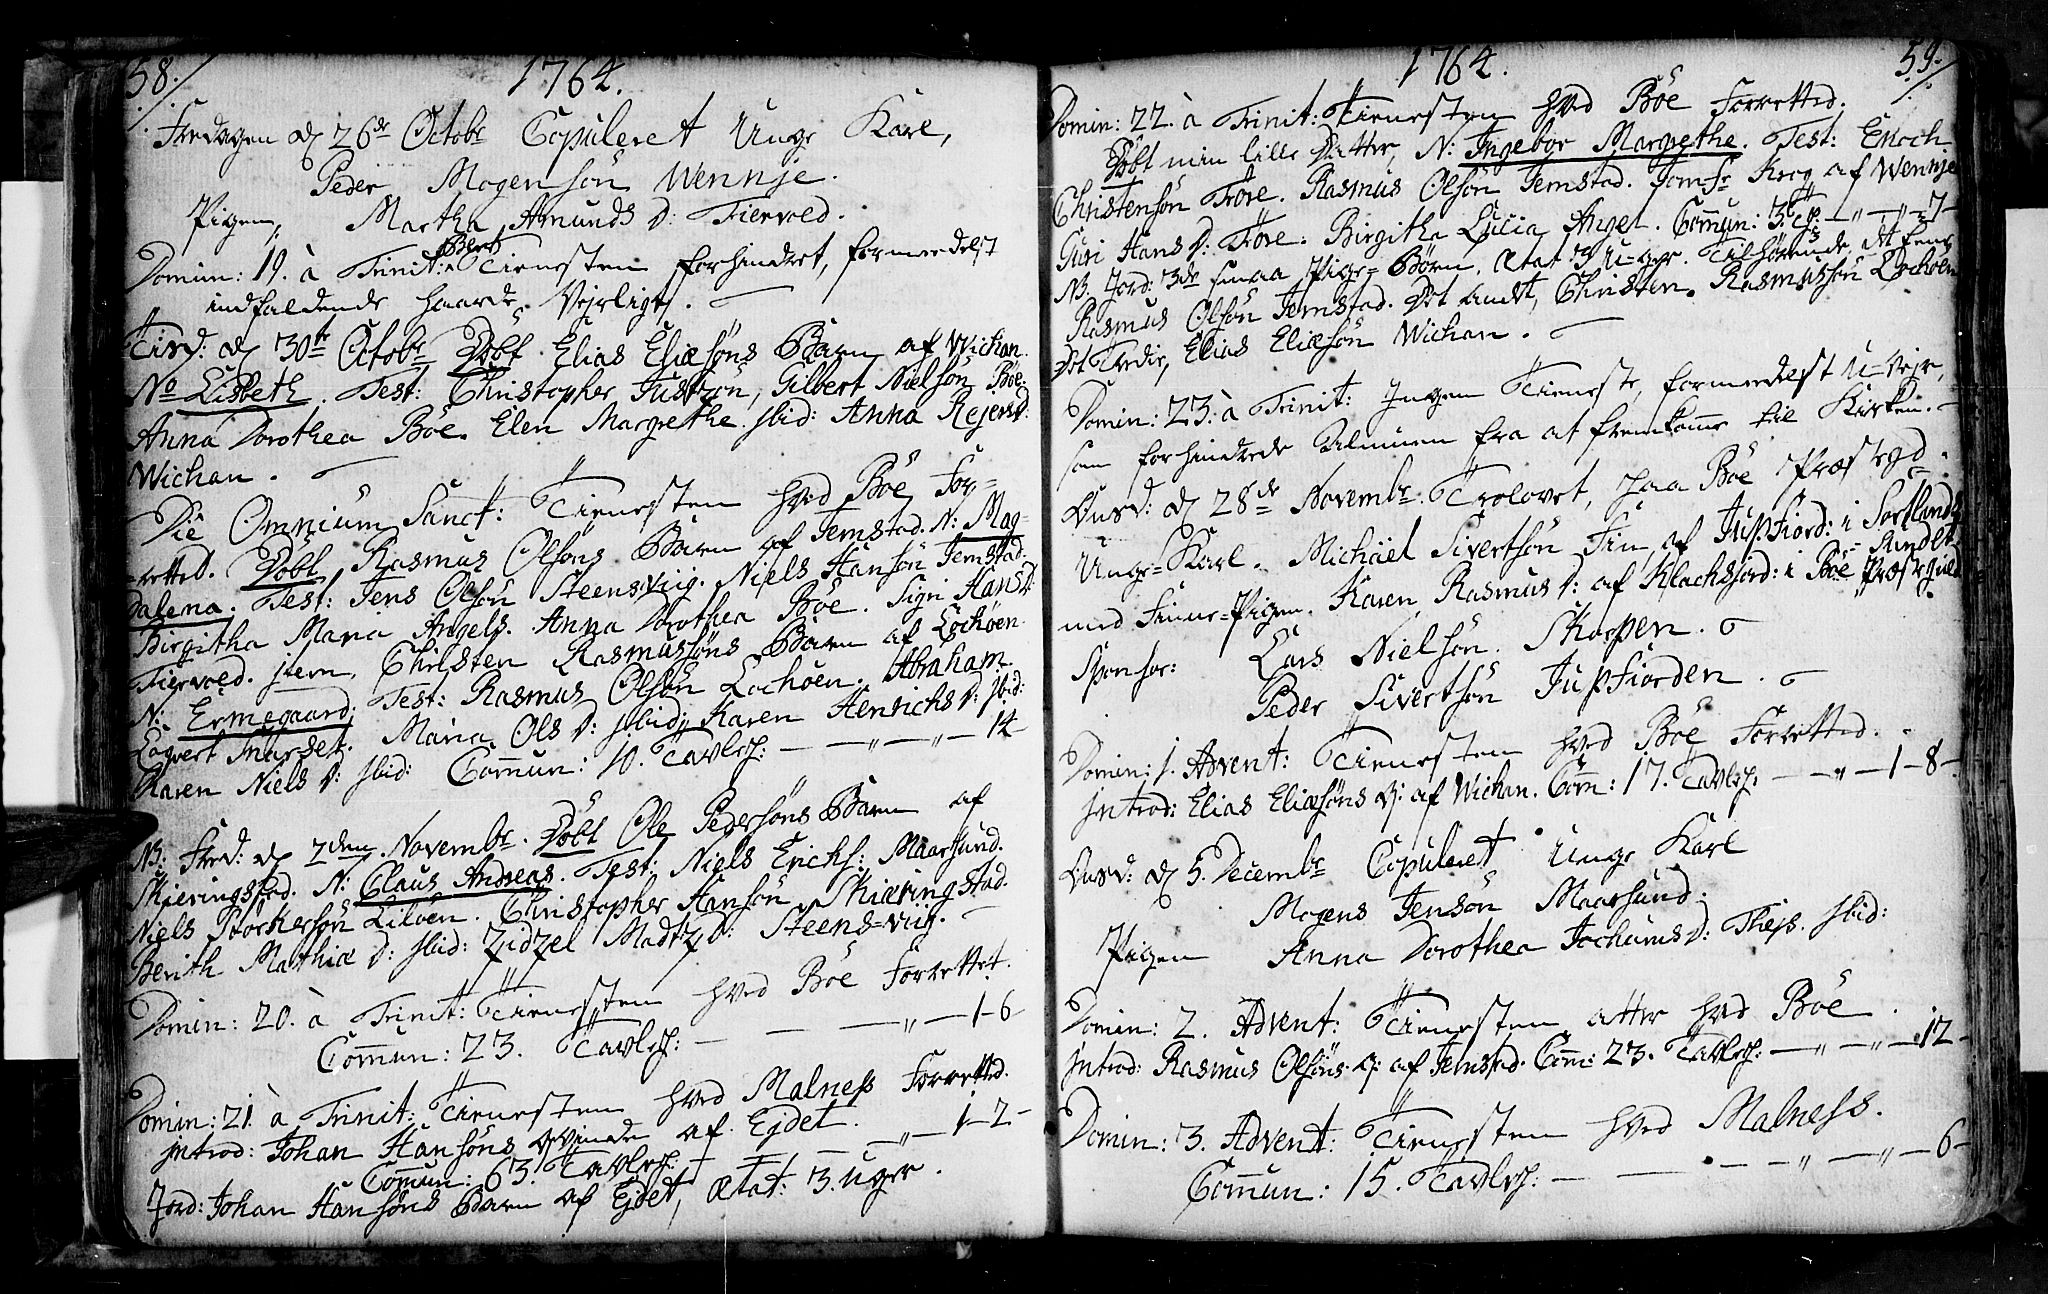 58.
1764.
Fredagen d 26de Octobr Copuleret Unge Karl,
Peder Mogensön Wennje.
Pigen, Martha Amunds D: Fiervold.
Domin: 19. à Trinit: blev Tienesten forhindret, formedelst
indfaldende haarde Vejrliget.
Tirsd: d 30te Octobr Döbt Elias Eliæsöns Barn af Wichan.
No Lisbeth. Test: Christopher Justzön, Gilbert Nielsön Böe.
Anna Dorothea Böe. Elen Margrethe ibid: Anna Rejersd:
Wichan.
Die Omnium Sanct: Tienesten hved Böe For-
-rettet. Döbt Rasmus Olsöns Barn af Jemstad. N: Mag-
dalena. Test: Jens Olsön Steensviig. Niels Hansön Jemstad.
Birgitha Maria Angels. Anna Dorothea Böe. Sigri HansD:
Fiervold. item, Christen Rasmussöns Barn af Lochöen.
N: Ermegaard. Test: Rasmus Olsön Lochöen. Abraham
Edvert Maarset. Maria Ols D: ibid, Karen Henrichs D: ibid:
Karen Niels D: ibid: Comun: 10. Tavlep: — — „ — „ — 14 —
NB: Fred: d 2den Novembr. Döbt Ole Pedersöns Barn af
Skjeringstad. N: Claus Andreas. Test: Niels Erichs: Maarsund.
Niels Störkersön Lilöen. Christopher Hansön Skiæringstad.
Berith Mathiæ D: ibid: Zidzel Madtz D: Steens-viig.
Domin: 20. à Trinit: Tienesten hved Böe Forrettet.
Comun: 23. Tavlep: — — — „ — 1 — 6 —
Domin: 21. à Trinit: Tienesten hved Malness Forrettet.
Introd: Johan Hansöns Qvinde af Ejdet.
Comun: 63. Tavlep: — — — „ — 1 — 2 —
Jord: Johan Hansöns Barn af Ejdet, Ætat: 3. Uger.
1764.
59.
Domin: 22. à Trinit: Tienesten hved Böe Forrettet.
Döbt min lille Datter, N: Ingebor Margrethe. Test: Enoch
Christensön Före. Rasmus Olsön Jemstad. Jomfr Krog af Wennje
Guri Hans D: Före. Birgitha Lucia Angel. Comun: 3. — „ — „ — 7 —
NB. Jord: 3de smaa Pige-Börn. Ætat 3 Uger. Tilhörende, det Eene
Rasmus Olsön Jemstad. Det andet, Christen Rasmussön Lochöen
Det Tredie, Elias Eliæsön Wichan.
Domin: 23. à Trinit: Ingen Tieneste, formedelst U-Vejr,
som forhindrede Almuen fra at fremkomme til Kirken.
Onsd: d 28de Novembr. Trolovet, paa Böe Præstegd.
Unge-Karl. Michael Sivertsön Fin af Jupfiord: i Sortlands
med Finne-Pigen. Karen Rasmus D: af Klachsfiord: i Böe Præstegield.
Sponsor: Lars Nielsön. Skarpen.
Peder Sivertsön Jupfiorden.
Domin: 1. Advent: Tienesten hved Böe Forrettet.
Introd: Elias Eliæsöns Q: af Wichan. Com: 17. Tavlep: — — „ — 1 — 8 —
Onsd: d 5. Decembr Copuleret Unge Karl
Mogens Jensön Maarsund.
Pigen Anna Dorothea Jochums D: Theis. ibid:
Domin: 2. Advent: Tienesten atter hved Böe.
Introd: Rasmus Olsöns Q: af Jemstad. Com: 23. Tavlep: — „ — „ — 12 —
Domin: 3. Advent: Tienesten hved Malness.
Comun: 15. Tavlep: — — — „ — „ — 6 —